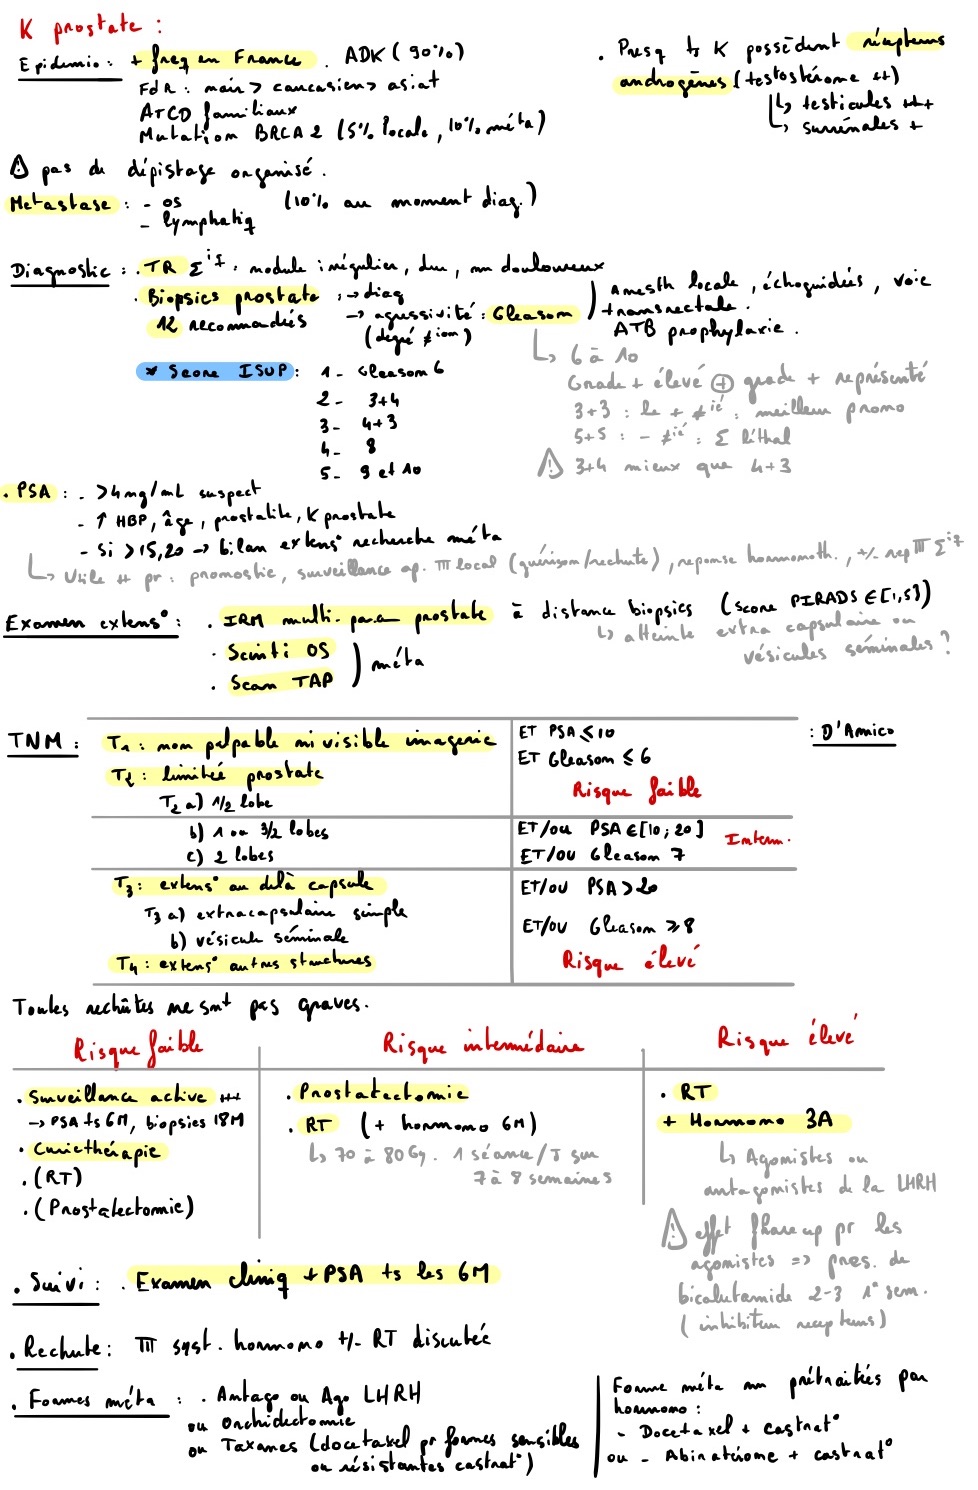 K prostate :
Epidemio : + freq en France . ADK ( 90%)
FdR : noir > caucasien > asiat
ATCD familiaux
Mutation BRCA 2 (5% locale, 10% méta)
. Presq ts K possèdent récepteurs
androgènes (testostérone ++)
↳ testicules +++
↳ surrénales +
⚠ pas de dépistage organisé.
Metastase : - os (10% au moment diag.)
- lymphatiq
Diagnostic : . TR Σ if : module irrégulier, dur, non douloureux
. Biopsies prostate : → diag
12 recommandées → agressivité : Gleason
(degré ≠ion)
) Anesth locale, échoguidées, voie
transrectale.
ATB prophylaxie.
↳ 6 à 10
Grade + élevé ⊕ grade + représenté
3+3 : le + ≠ié : meilleur prono
5+5 : - ≠ié : Σ léthal
⚠ 3+4 mieux que 4+3
* Score ISUP : 1 - Gleason 6
2 - 3+4
3 - 4+3
4 - 8
5 - 9 et 10
. PSA : - >4mg/mL suspect
- ↑ HBP, âge, prostatite, K prostate
- Si >15,20 → bilan extens° recherche méta
↳ Utile ++ pr : pronostic, surveillance ap. TTT local (guérison/rechute), reponse hormonoth., +/- rep TTT Σ if
Examen extens° : . IRM multi-param prostate à distance biopsies (score PIRADS ∈ [1,5])
↳ atteinte extra capsulaire ou
vésicules séminales ?
. Scinti OS
. Scan TAP ) méta
TNM : T1 : non palpable ni visible imagerie
T2 : limitée prostate
T2 a) 1/2 lobe
ET PSA ≤ 10
ET Gleason ≤ 6
Risque faible
: D'Amico
b) 1 ou 3/2 lobes
c) 2 lobes
ET/ou PSA ∈ [10 ; 20]
ET/OU Gleason 7
Interm.
T3 : extens° au delà capsule
T3 a) extracapsulaire simple
b) vésicule séminale
T4 : extens° autres structures
ET/OU PSA > 20
ET/OU Gleason ≥ 8
Risque élevé
Toutes rechûtes ne snt pas graves.
Risque faible
. Surveillance active +++
→ PSA ts 6M, biopsies 18M
. Curiethérapie
. (RT)
. (Prostatectomie)
Risque intermédaire
. Prostatectomie
. RT (+ hormono 6M)
↳ 70 à 80Gy. 1 séance/J sur
7 à 8 semaines
Risque élevé
. RT
+ Hormono 3A
↳ Agonistes ou
antagonistes de la LHRH
⚠ effet flare up pr les
agonistes => pres. de
bicalutamide 2-3 1° sem.
( inhibiteur recepteurs)
. Suivi : . Examen cliniq + PSA ts les 6M
. Rechute : TTT syst. hormono +/- RT discutée
. Formes méta : . Antago ou Ago LHRH
ou Orchidectomie
ou Taxanes (docetaxel pr formes sensibles
ou résistantes castrat°)
Forme méta nn prétraitées par
hormono :
- Docetaxel + castrat°
ou - Abiratérone + castrat°